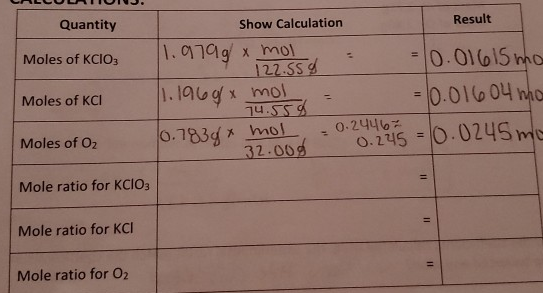 CALCULATIONS:
Quantity Show Calculation Result
Moles of KClO₃ 1.979g x mol / 122.55g = = 0.01615 mo
Moles of KCl 1.196g x mol / 74.55g = = 0.01604 mo
Moles of O₂ 0.783g x mol / 32.00g = 0.2446≈ 0.245 = 0.0245 mo
Mole ratio for KClO₃ =
Mole ratio for KCl =
Mole ratio for O₂ =